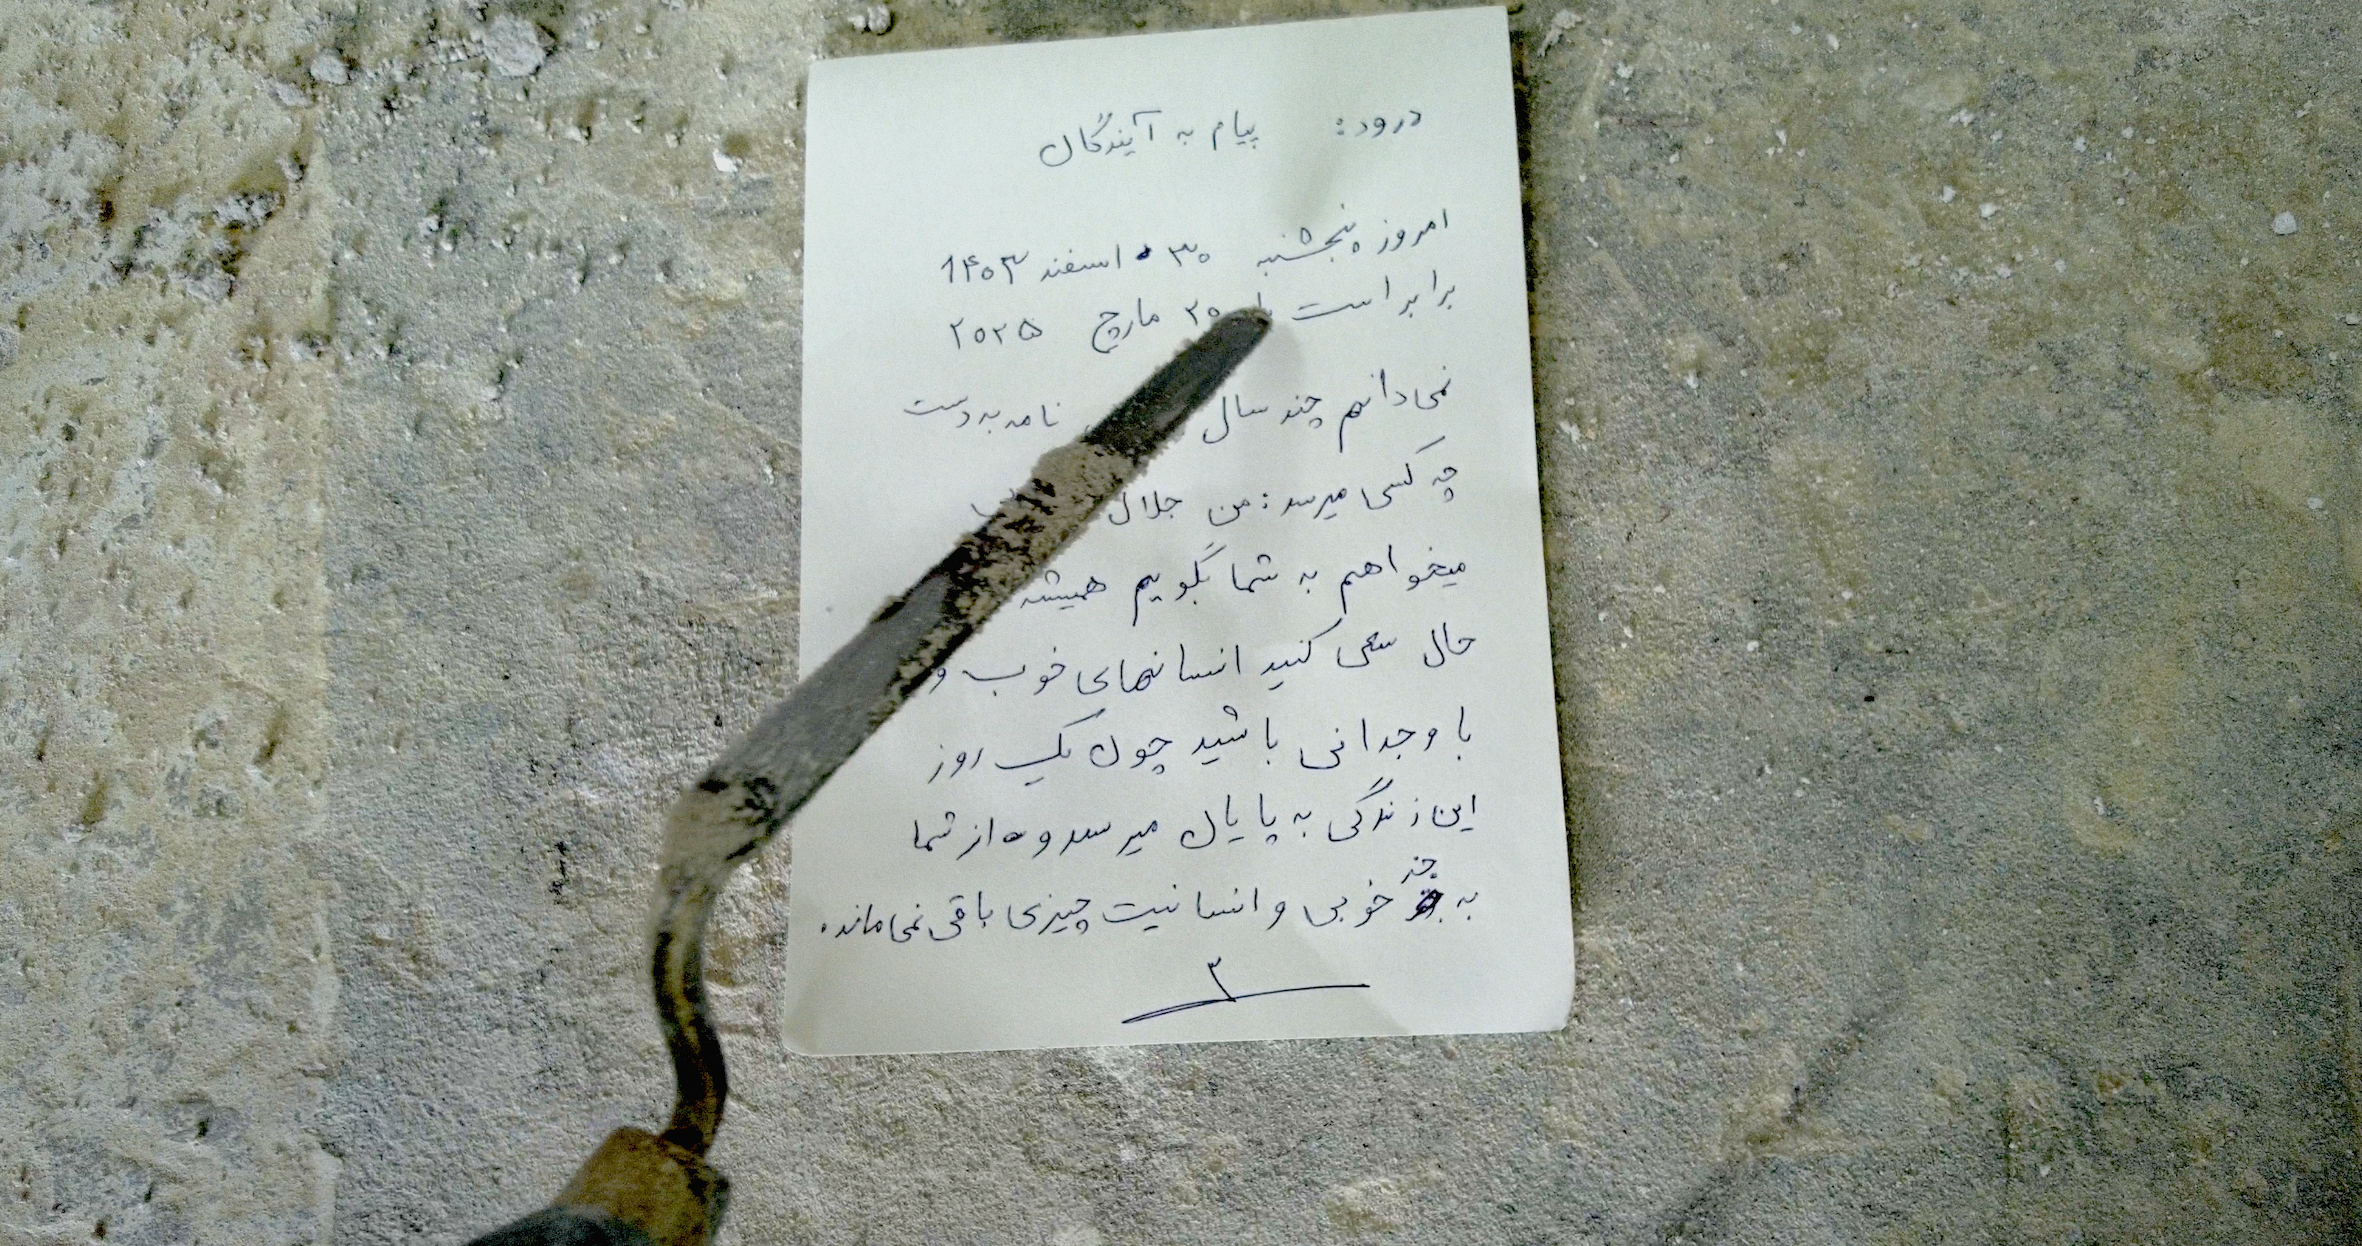 درود: پیام به آیندگان
امروز پنجشنبه ۳۰ اسفند ۱۴۰۳
برابر است ۲۰ مارچ ۲۰۲۵
نمی‌دانم چند سال نامه به دست
چه کسی میرسد: من جلال
میخواهم به شما بگویم همیشه
حال سعی کنید انسانهای خوب و
با وجدانی باشید چون یک روز
این زندگی به پایان میرسد و از شما
به جز خوبی و انسانیت چیزی باقی نمی‌ماند.
۳